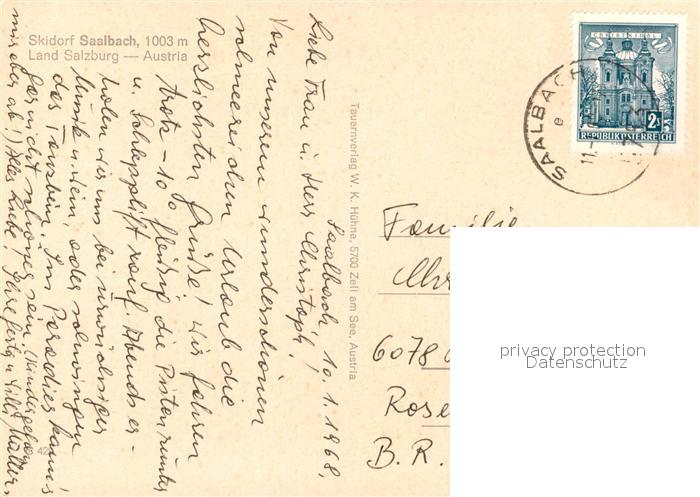 Skidorf Saalbach, 1003 m
Land Salzburg — Austria
Saalbach, 10.1.1968,
Liebe Frau u. Herr Christoph!
Von unserem wunderschönen
schneereichen Urlaub die
herzlichsten Grüße! Wir fahren
trotz -10° fleißig die Pisten runter
u. Schlepplift rauf. Abends er-
holen wir uns bei urwüchsiger
Musik u. Wein, oder schwingen
das Tanzbein. Im Paradies kann's
gar nicht schöner sein. (Kinder gehen
mir aber ab!) Alles Liebe, Ihre
Tauernverlag W. K. Hühne, 5700 Zell am See, Austria
CHRISTKINDL
2S
REPUBLIK ÖSTERREICH
SAALBACH
e
11.-
Familie
Chr
6078
Rose
B. R.
privacy protection
Datenschutz
42